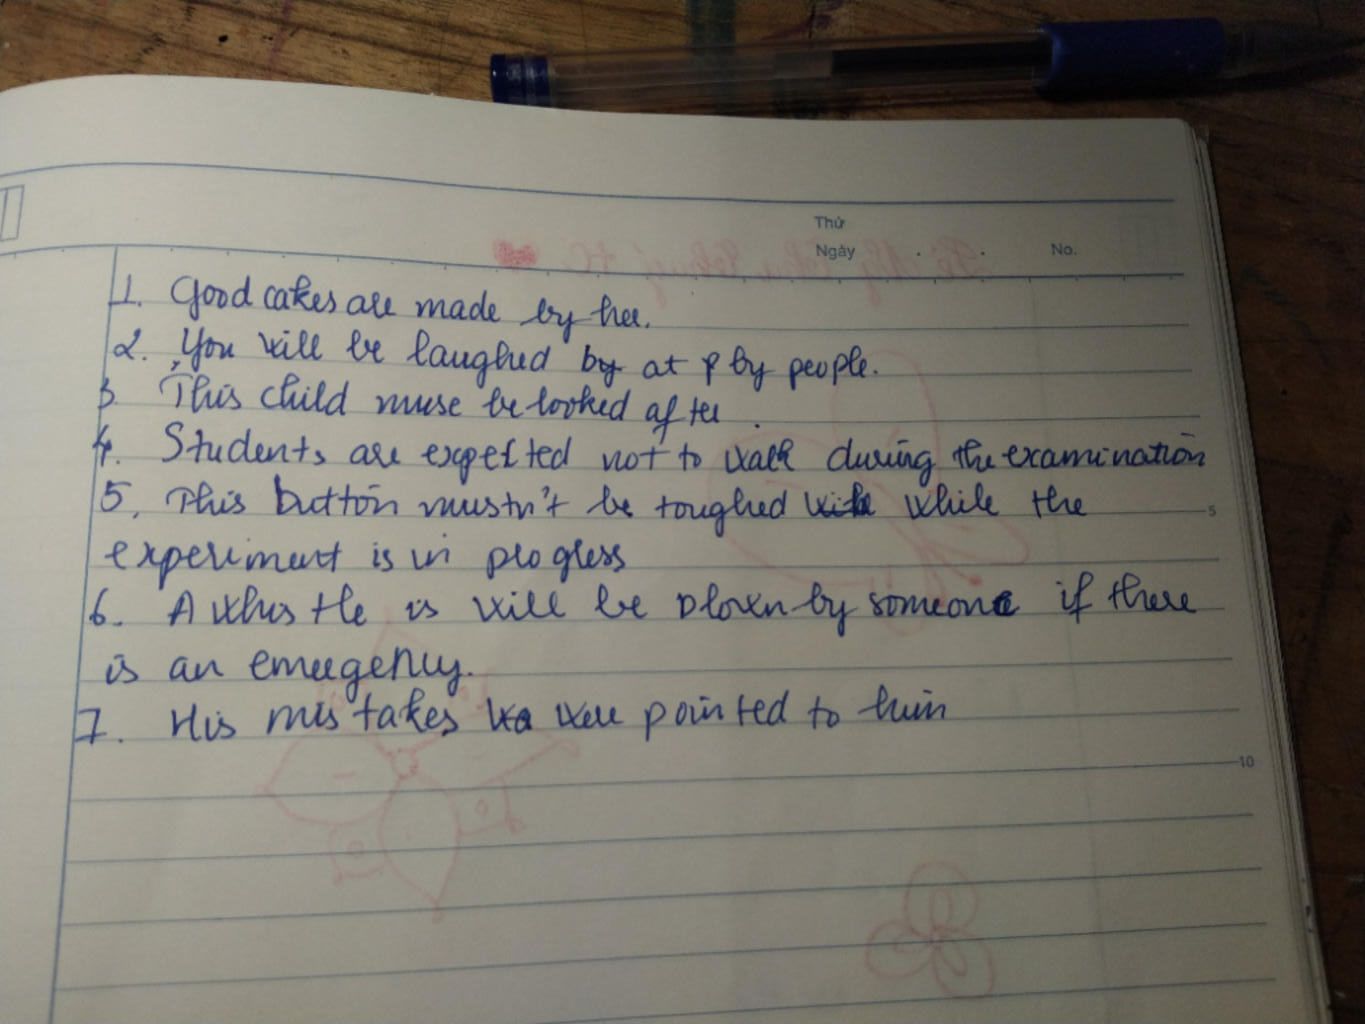 Thứ
Ngày . . No.
1. Good cakes are made by her.
2. You will be laughed by at p by people.
3. This child muse be looked after.
4. Students are expected not to walk during the examination
5. This button mustn't be toughed while the
5
experiment is in progress
6. A whistle is will be blown by someone if there
is an emergency.
7. His mistakes we were pointed to him
10